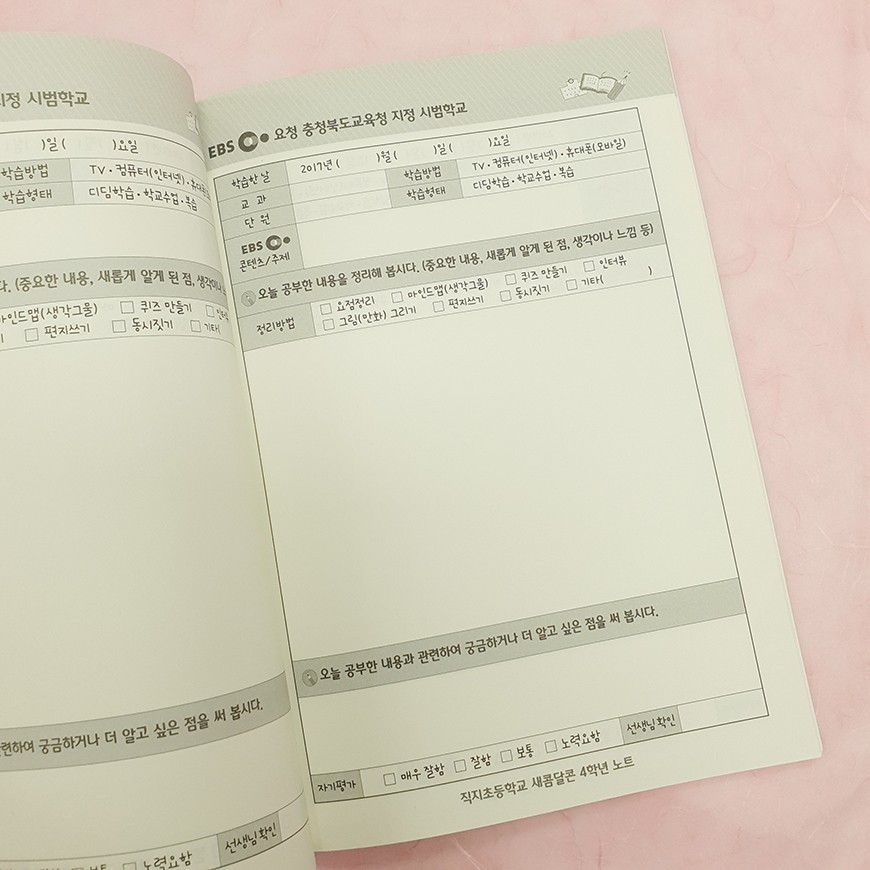 지정 시범학교
)일 (          )요일
학습방법 TV·컴퓨터(인터넷)·휴대폰
학습형태 디딤학습·학교수업·복습
다. (중요한 내용, 새롭게 알게 된 점, 생각이나 느
마인드맵(생각그물) □ 퀴즈 만들기 □ 인터
□ 편지쓰기 □ 동시짓기 □ 기타(
련하여 궁금하거나 더 알고 싶은 점을 써 봅시다.
□ 보통 □ 노력요함 선생님확인
EBS 요청 충청북도교육청 지정 시범학교
학습한 날 2017년 (          )월 (          )일 (          )요일
교 과 학습방법 TV·컴퓨터(인터넷)·휴대폰(모바일)
단 원 학습형태 디딤학습·학교수업·복습
EBS
콘텐츠/주제
오늘 공부한 내용을 정리해 봅시다. (중요한 내용, 새롭게 알게 된 점, 생각이나 느낌 등)
정리방법 □ 요점정리 □ 마인드맵(생각그물) □ 퀴즈 만들기 □ 인터뷰
□ 그림(만화) 그리기 □ 편지쓰기 □ 동시짓기 □ 기타(          )
오늘 공부한 내용과 관련하여 궁금하거나 더 알고 싶은 점을 써 봅시다.
자기평가 □ 매우 잘함 □ 잘함 □ 보통 □ 노력요함 선생님확인
직지초등학교 새콤달콘 4학년 노트